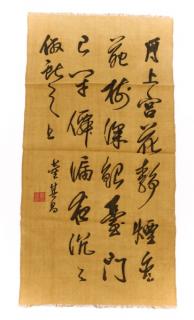 月上宮花靜煙含
苑樹深銀臺門
已閉僊漏夜沉々
倣獻之
董其昌